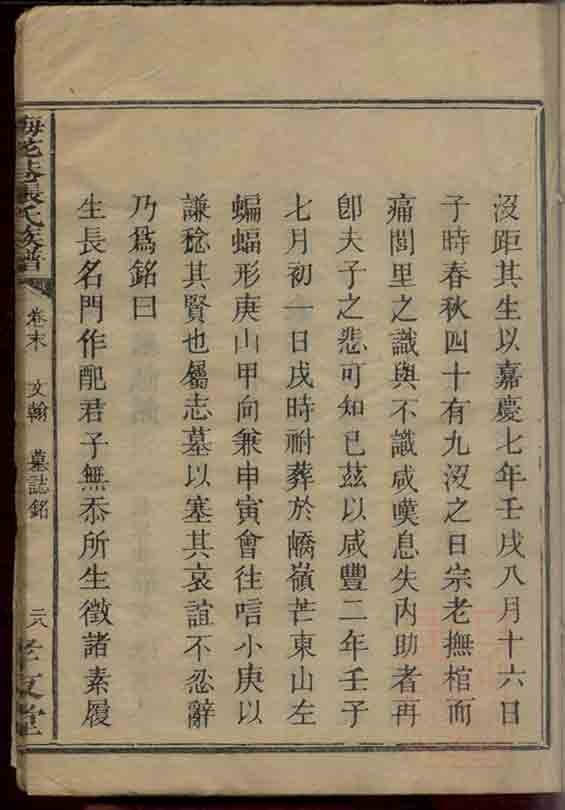 沒距其生以嘉慶七年壬戌八月十六日
子時春秋四十有九沒之日宗老撫棺而
痛閭里之識與不識咸嘆息失內助者再
卽夫子之悲可知已茲以咸豐二年壬子
七月初一日戌時祔葬於嶠嶺芒東山左
蝙蝠形庚山甲向兼申寅會往唁小庚以
謙稔其賢也屬志墓以塞其哀誼不忍辭
乃爲銘曰
生長名門作配君子無忝所生徵諸素履
梅花巷張氏族譜
卷末 文翰 墓誌銘
二八 孝友堂